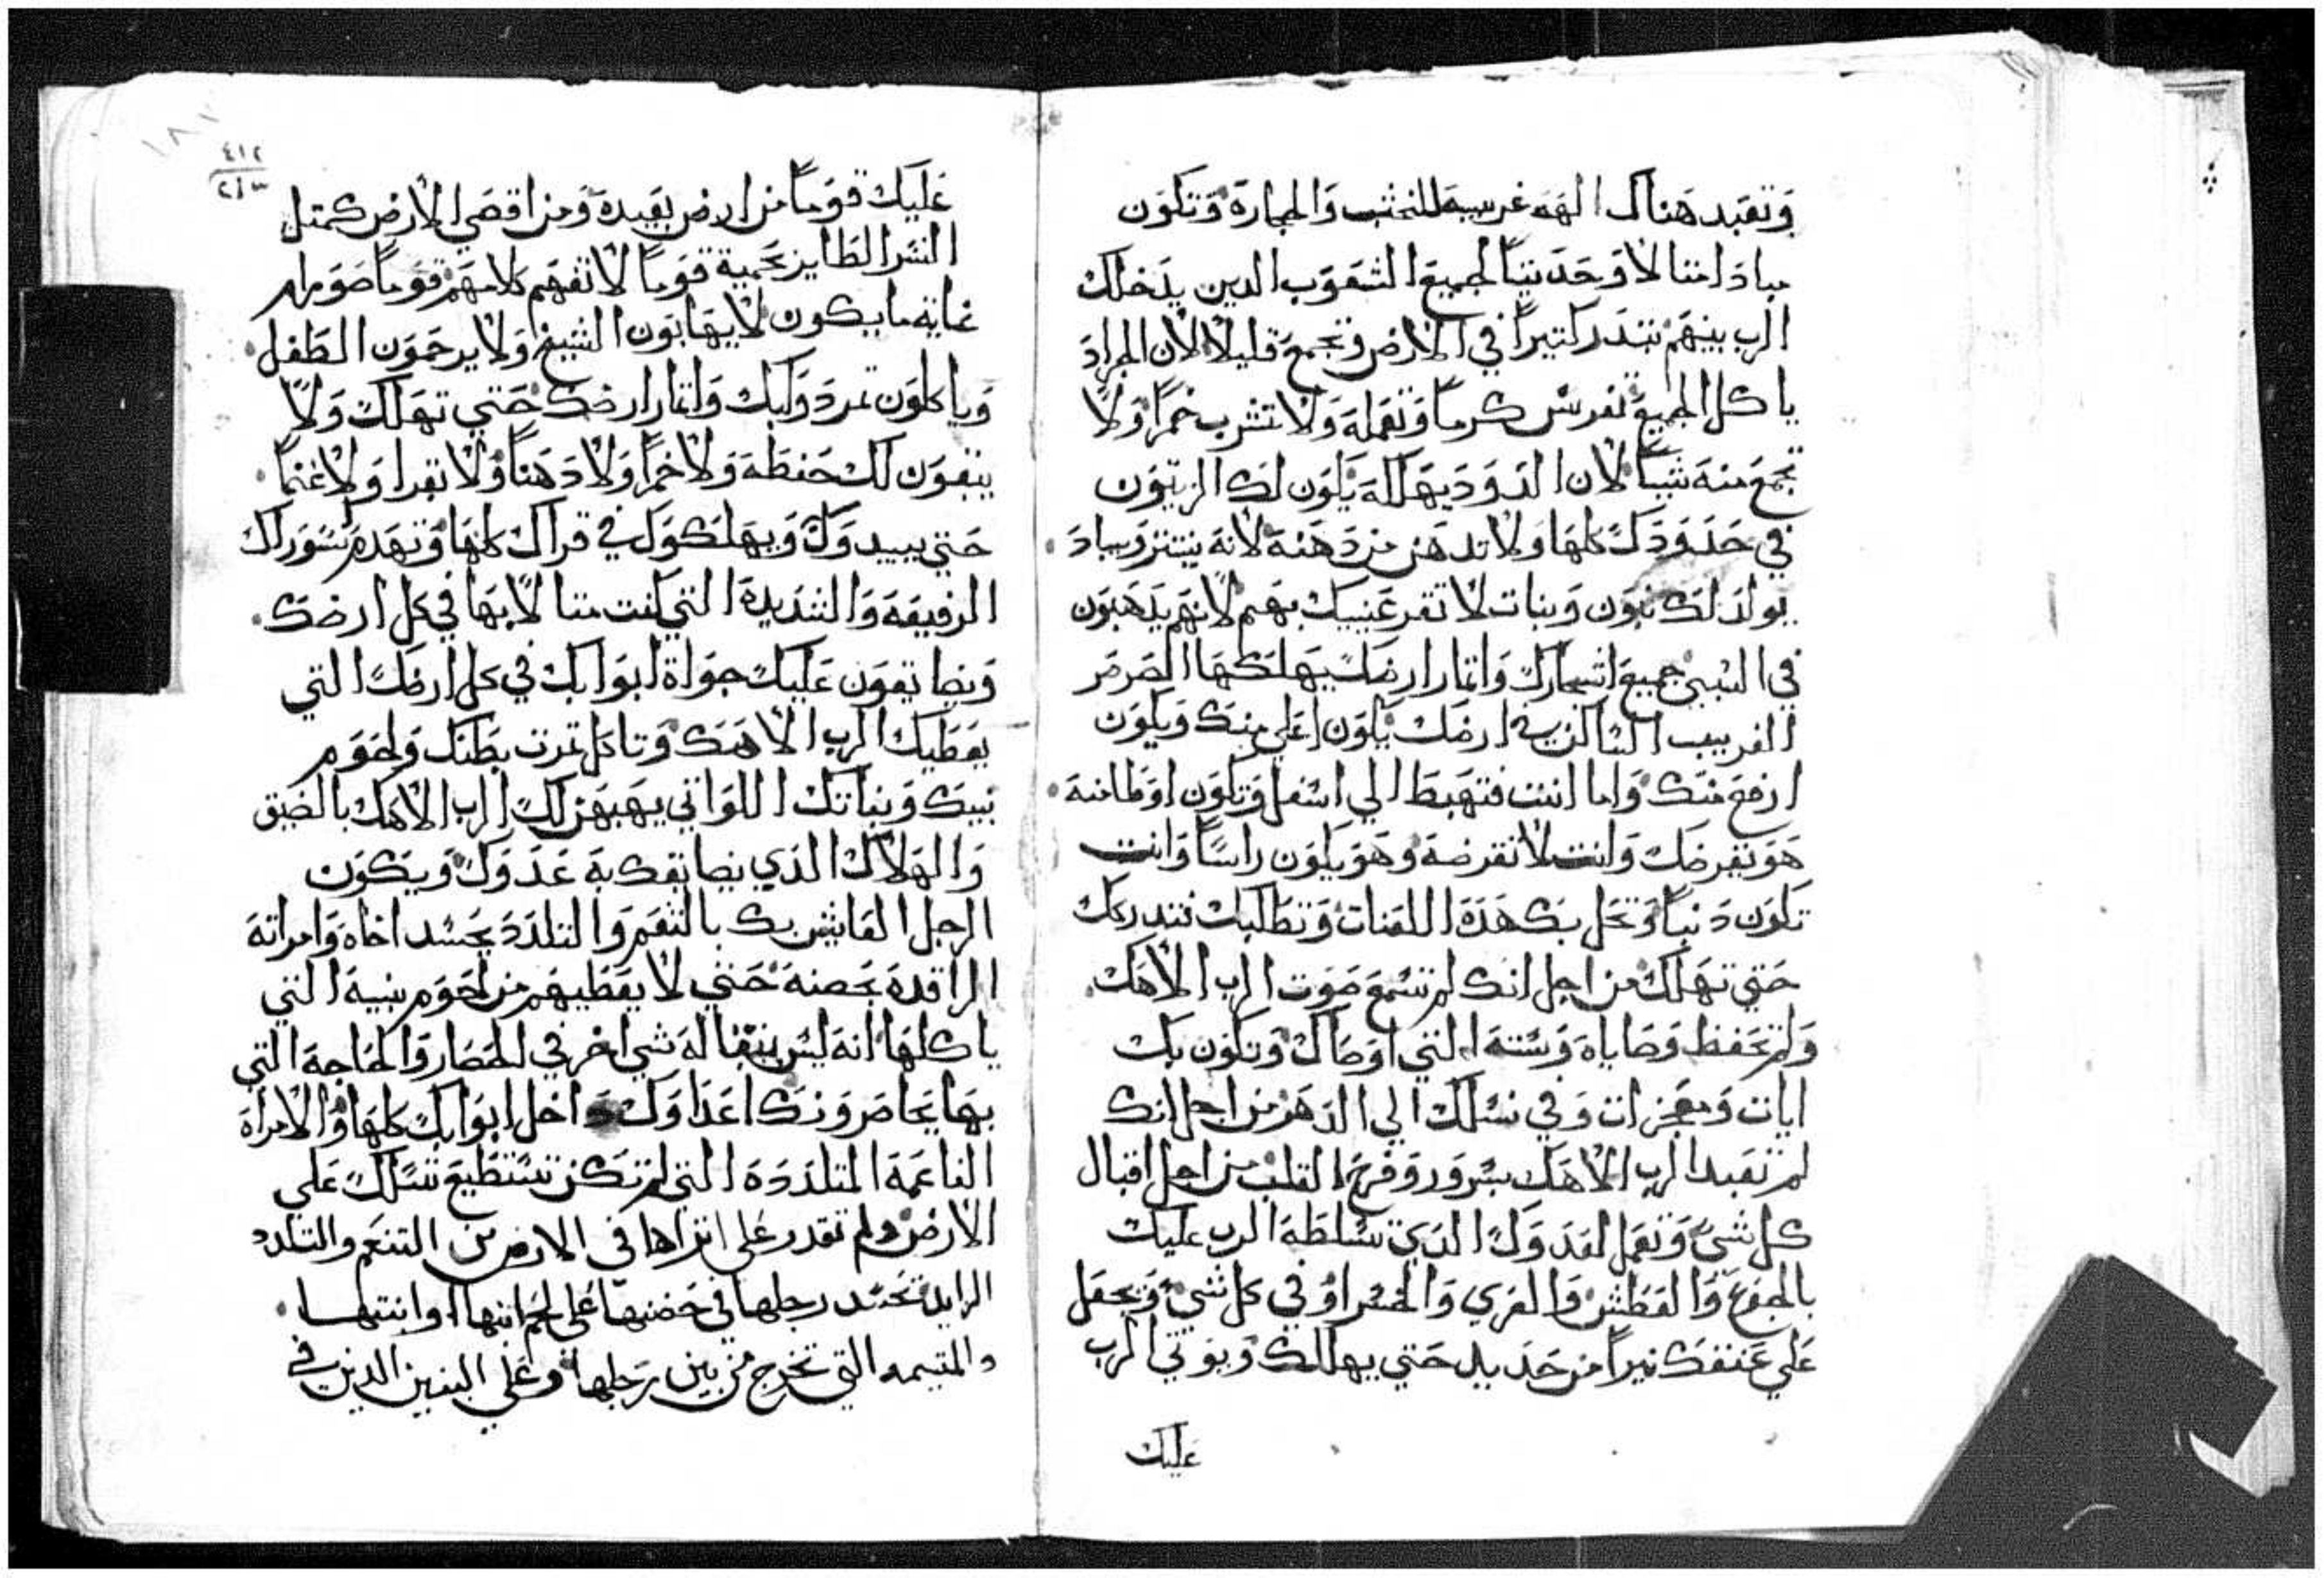 وتعبد هناك الهه غريبة للخشب والحجارة وتكون
مبادا متنا لا وحديثا لجميع الشعوب الدين يدخلك
الرب بينهم تبدر كتيرا في الارض وتجمع قليلا لان الجراد
ياكل الجميع تغرس كرما وتعمله ولا تشرب خمرا ولا
تجمع منه شيا لان الدود يهلكه يكون لك الزيتون
في حدودك كلها ولا تدهن من دهنه لانه ينتتر ويباد
يولد لك بنون وبنات لا تقر عنييك بهم لانهم يدهبون
في السبي جميع اشجارك واتمار ارضك يهلكها الصرصر
الغريب الساكن في ارضك يكون اعلي منك ويكون
ارفع منك واما انت فتهبط الي اسفل وتكون اوطا منه
هو يقرضك وانت لا تقرضه وهو يكون راسا وانت
تكون دنبا وتحل بك هده اللعنات وتطلبك فتدركك
حتي تهلك من اجل انك لم تسمع صوت الرب الاهك
ولم تحفظ وصاياه وسنته التي اوصاك وتكون بك
ايات ومعجزات وفي نسلك الي الدهر من اجل انك
لم تعبد الرب الاهك بسرور وفرح القلب من اجل اقبال
كل شي وتعمل لعدوك الدي يسلطه الرب عليك
بالجوع والعطش والعري والخسراو في كل شي ويجعل
علي عنقك نيرا من حديد حتي يهلكك ويوتي الرب
عليك
٤١٢
عليك قوما من ارض بعيدة ومن اقصي الارض كمتل
النسر الطاير بحمية قوما لا تفهم كلامهم قوما صورهم
غاية ما يكون لا يهابون الشيخ ولا يرحمون الطفل
وياكلون تمر دوابك واتمار ارضك حتي تهلك ولا
يبقون لك حنطة ولا خمرا ولا دهنا ولا بقرا ولا غنما
حتي يبيدوك ويهلكوك في قراك كلها وتهدم سورك
الرفيعة والشديدة التي كنت متكلا بها في كل ارضك
ويضايقون عليك جواة ابوابك في كل ارضك التي
يعطيك الرب الاهك وتاكل تمرت بطنك ولحوم
بنيك وبناتك اللواتي يهبهن لك الرب الاهك بالضيق
والهلاك الدي يضايقك به عدوك ويكون
الرجل العايش بك بالتنعم والتلدد يحسد اخاه وامراته
الراقدة بحضنه حتي لا يعطيهم من لحوم بنيه التي
ياكلها انه ليس يبقا له شي اخر في الحصار والحاجة التي
بها يحاصرونك اعداوك داخل ابوابك كلها والامراة
الناعمة المتلددة التي لم تكن تستطيع تسلك علي
الارض ولم تقدر علي اتراها في الارض من التنعم والتلدد
الزايد تحسد رجلها في حضنها علي لحم ابنها او ابنتها
والمتيمه التي تخرج من بين رجلها وعلي البنين الدين في